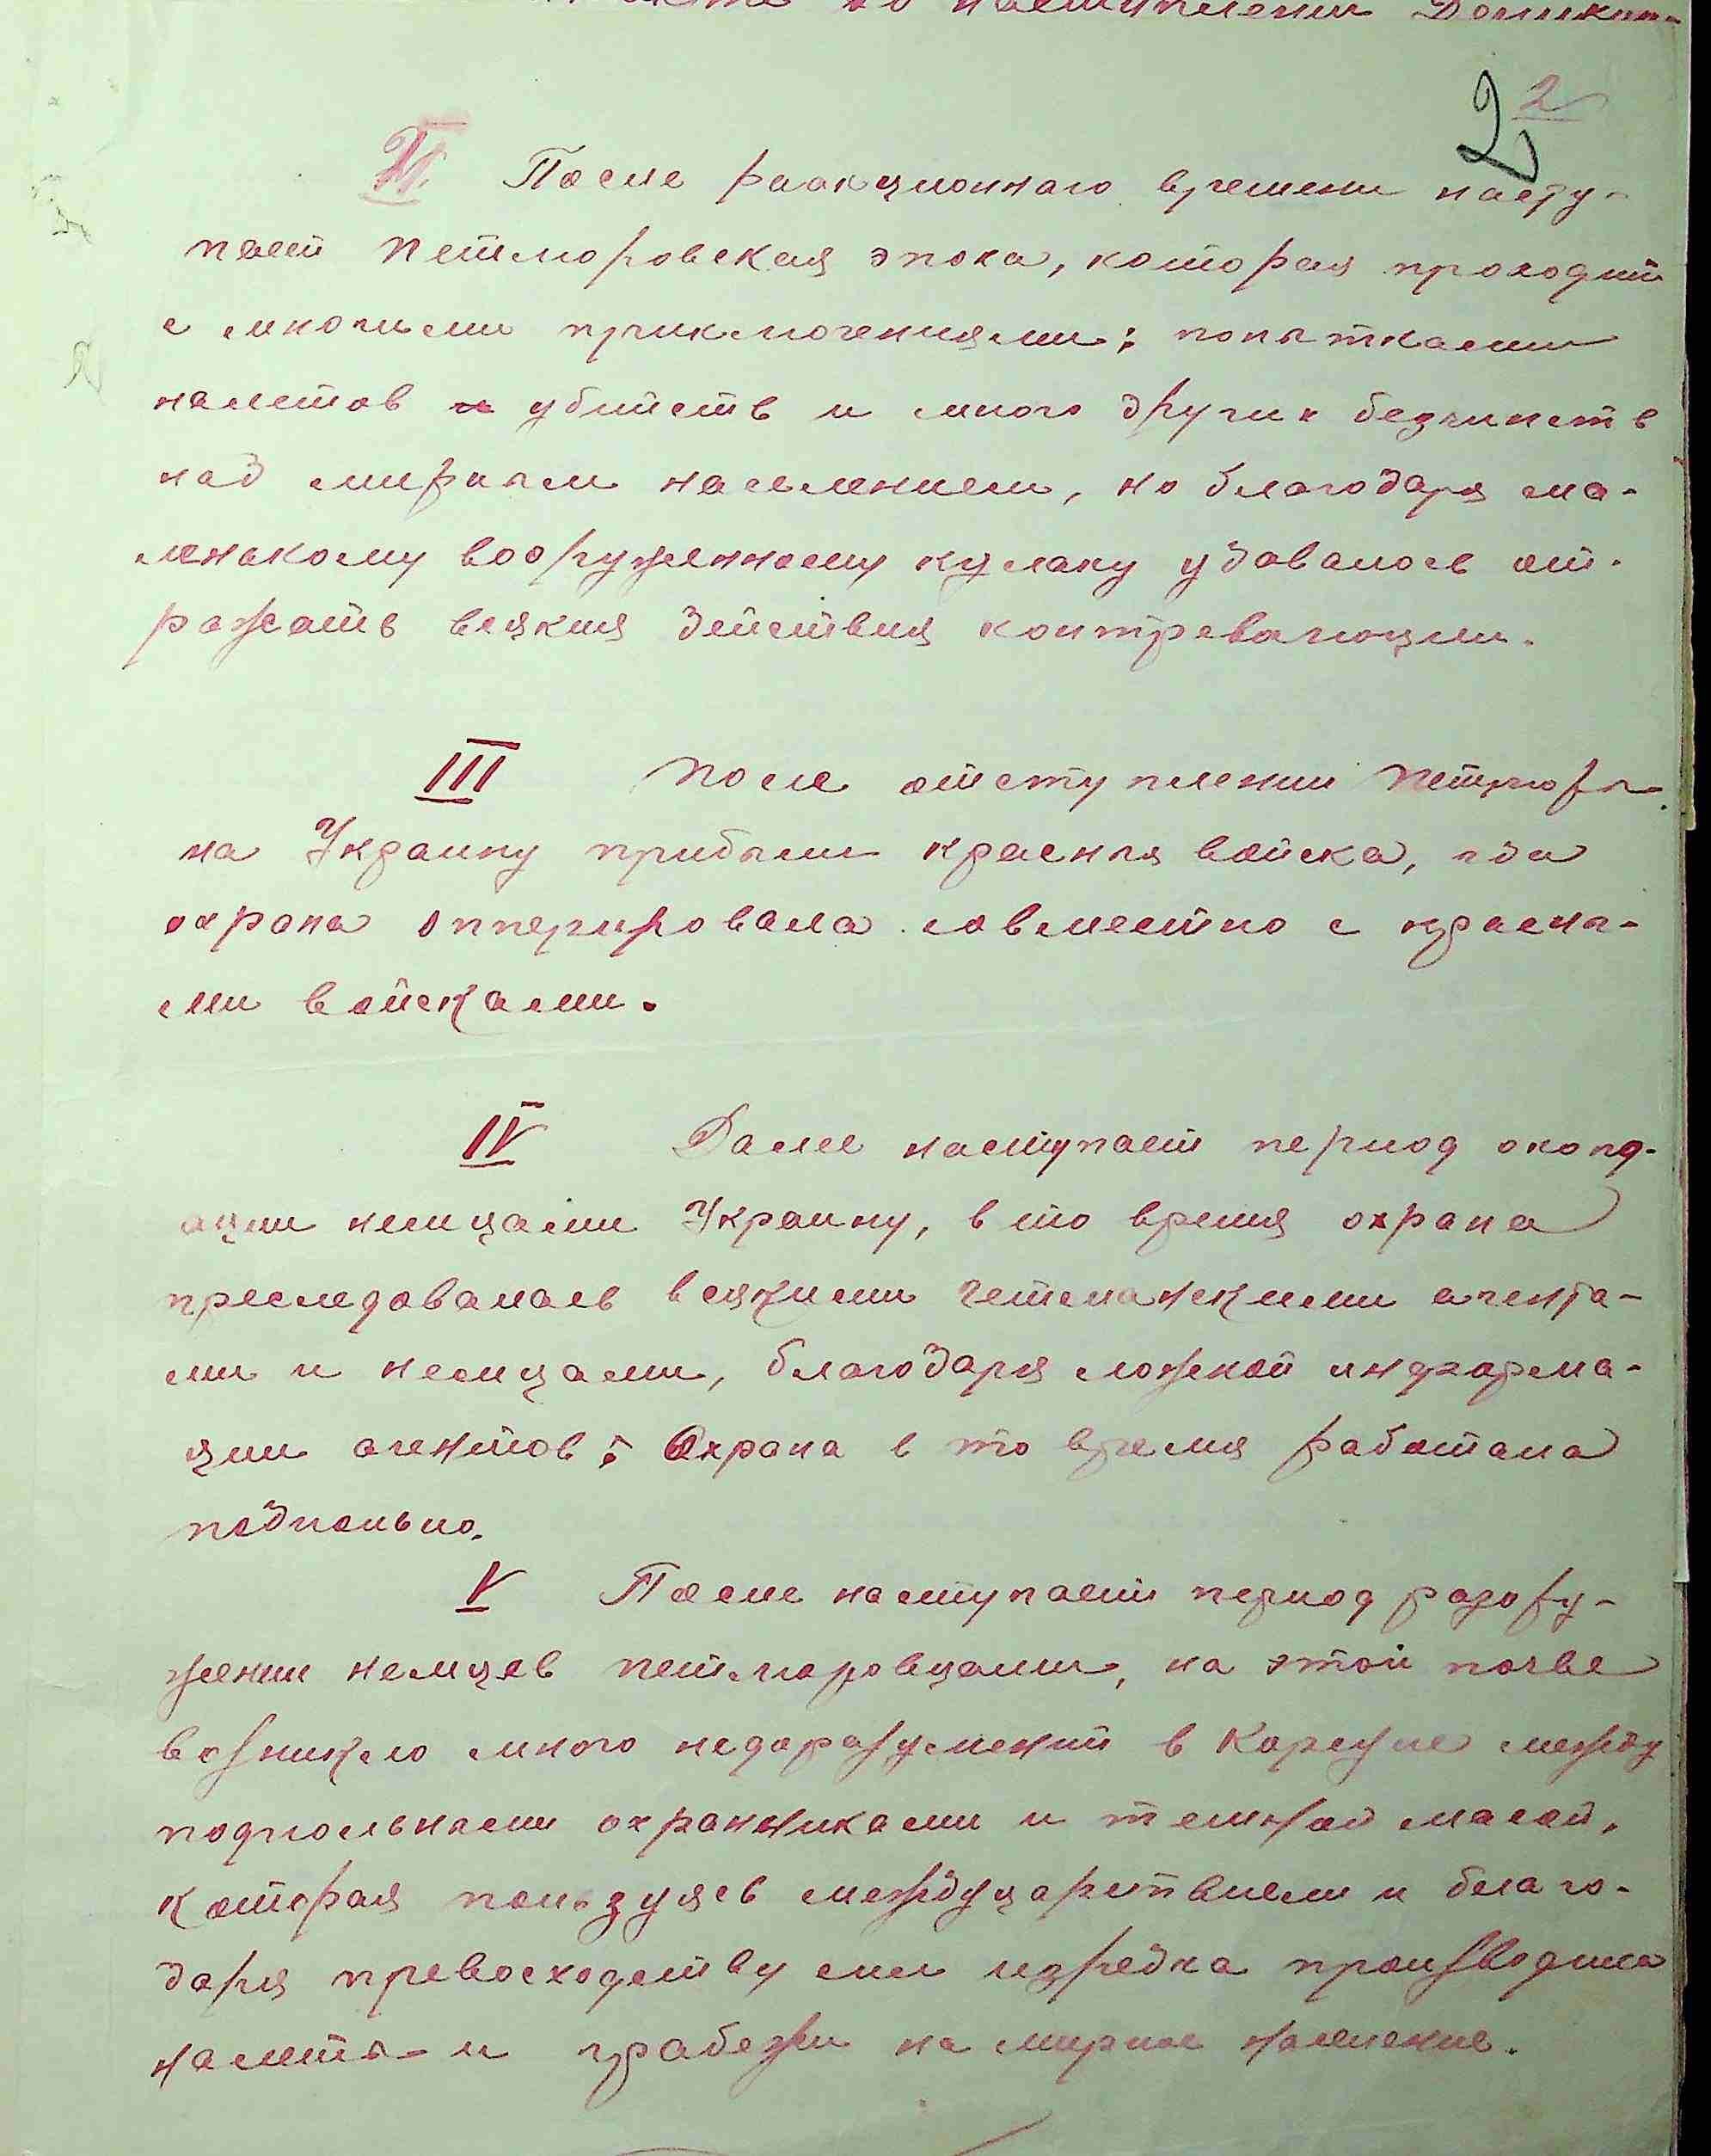 наступлении
2 2
II. После раакционнаго времени насту-
пает петлюровская эпоха, которая проходит
с многими приключениями: попытками
налетов убийств и много других безчинств
над мирным населением, но благодаря ма-
ленькому вооруженному кулаку удавалось от-
ражать всякия действия контреволюции.
III После отступлении Петлюры
на Украину прибыли красныя войска, где
охрана опперировала совместно с красны-
ми войсками.
IV Далее наступает период окопа-
ации немцами Украину, в то время охрана
преследовалась всякими гетманскими агента-
ми и немцами, благодаря ложной информа-
ции агентов; Охрана в то время работала
подпольно.
V После наступает период разору-
жении немцев петлюровцами, на этой почве
возникло много недоразумений в Корсуне между
подпольными охранниками и темной масой,
которая пользуясь междуцарствием и благо-
даря превосходству сил изредка производила
налеты и грабежи на мирное население.